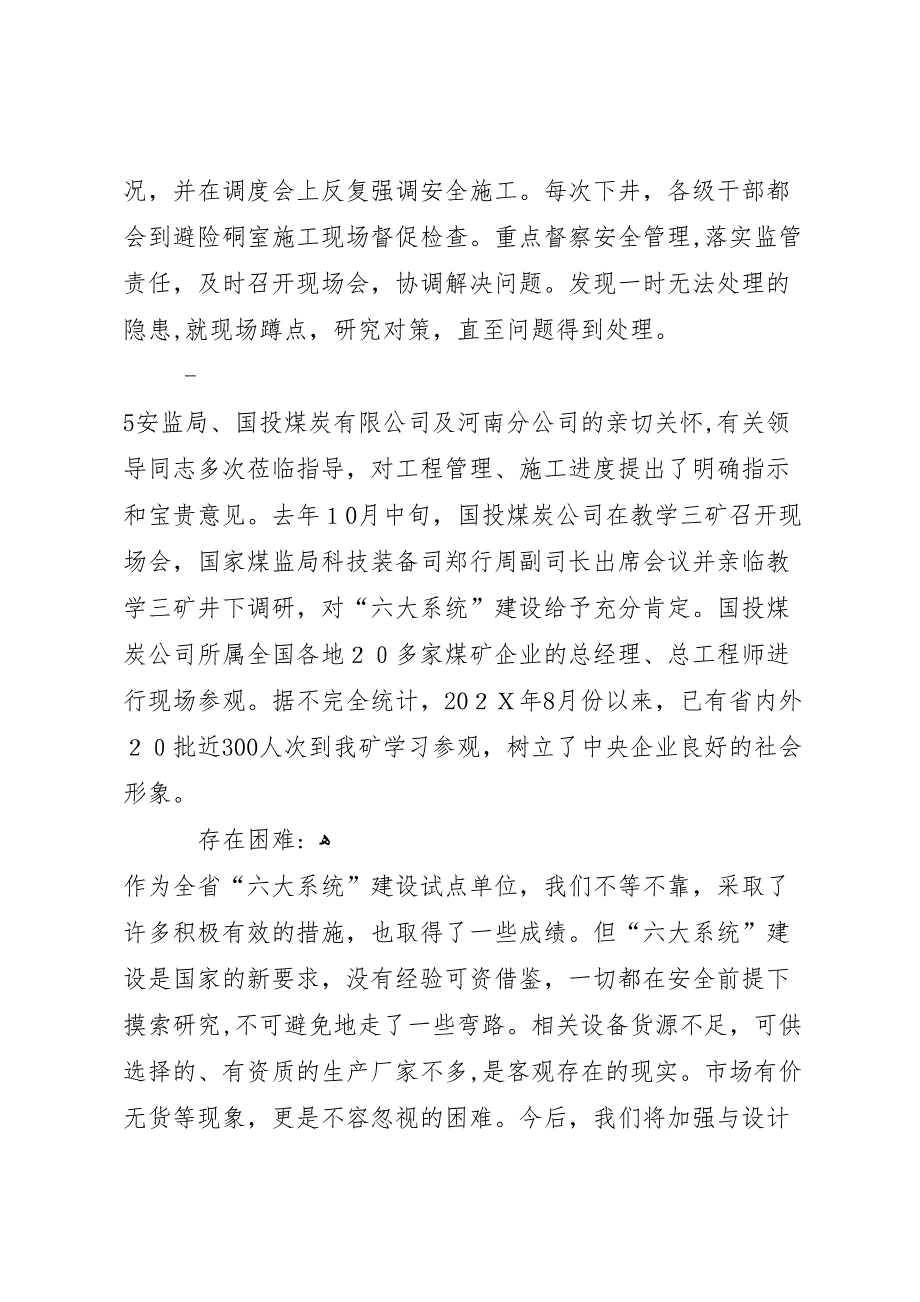 况，并在调度会上反复强调安全施工。每次下井，各级干部都
会到避险硐室施工现场督促检查。重点督察安全管理,落实监管
责任，及时召开现场会，协调解决问题。发现一时无法处理的
隐患,就现场蹲点，研究对策，直至问题得到处理。
–
5安监局、国投煤炭有限公司及河南分公司的亲切关怀,有关领
导同志多次莅临指导，对工程管理、施工进度提出了明确指示
和宝贵意见。去年１0月中旬，国投煤炭公司在教学三矿召开现
场会，国家煤监局科技装备司郑行周副司长出席会议并亲临教
学三矿井下调研，对“六大系统”建设给予充分肯定。国投煤
炭公司所属全国各地２０多家煤矿企业的总经理、总工程师进
行现场参观。据不完全统计，20２Ｘ年8月份以来，已有省内外
２０批近300人次到我矿学习参观，树立了中央企业良好的社会
形象。
存在困难: ﻫ
作为全省“六大系统”建设试点单位，我们不等不靠，采取了
许多积极有效的措施，也取得了一些成绩。但“六大系统”建
设是国家的新要求，没有经验可资借鉴，一切都在安全前提下
摸索研究,不可避免地走了一些弯路。相关设备货源不足，可供
选择的、有资质的生产厂家不多,是客观存在的现实。市场有价
无货等现象，更是不容忽视的困难。今后，我们将加强与设计